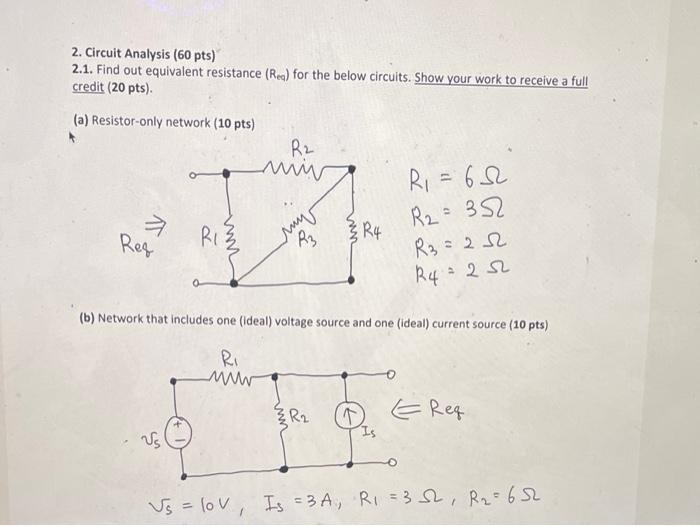 2. Circuit Analysis (60 pts)
2.1. Find out equivalent resistance (Req) for the below circuits. Show your work to receive a full
credit (20 pts).
(a) Resistor-only network (10 pts)
R2
R1 = 6 Ω
R2 = 3 Ω
Req ⇒
R1
R3
R4
R3 = 2 Ω
R4 = 2 Ω
(b) Network that includes one (ideal) voltage source and one (ideal) current source (10 pts)
R1
R2
⇐ Req
Is
+
−
Vs
Vs = 10V, Is = 3A, R1 = 3 Ω, R2 = 6 Ω